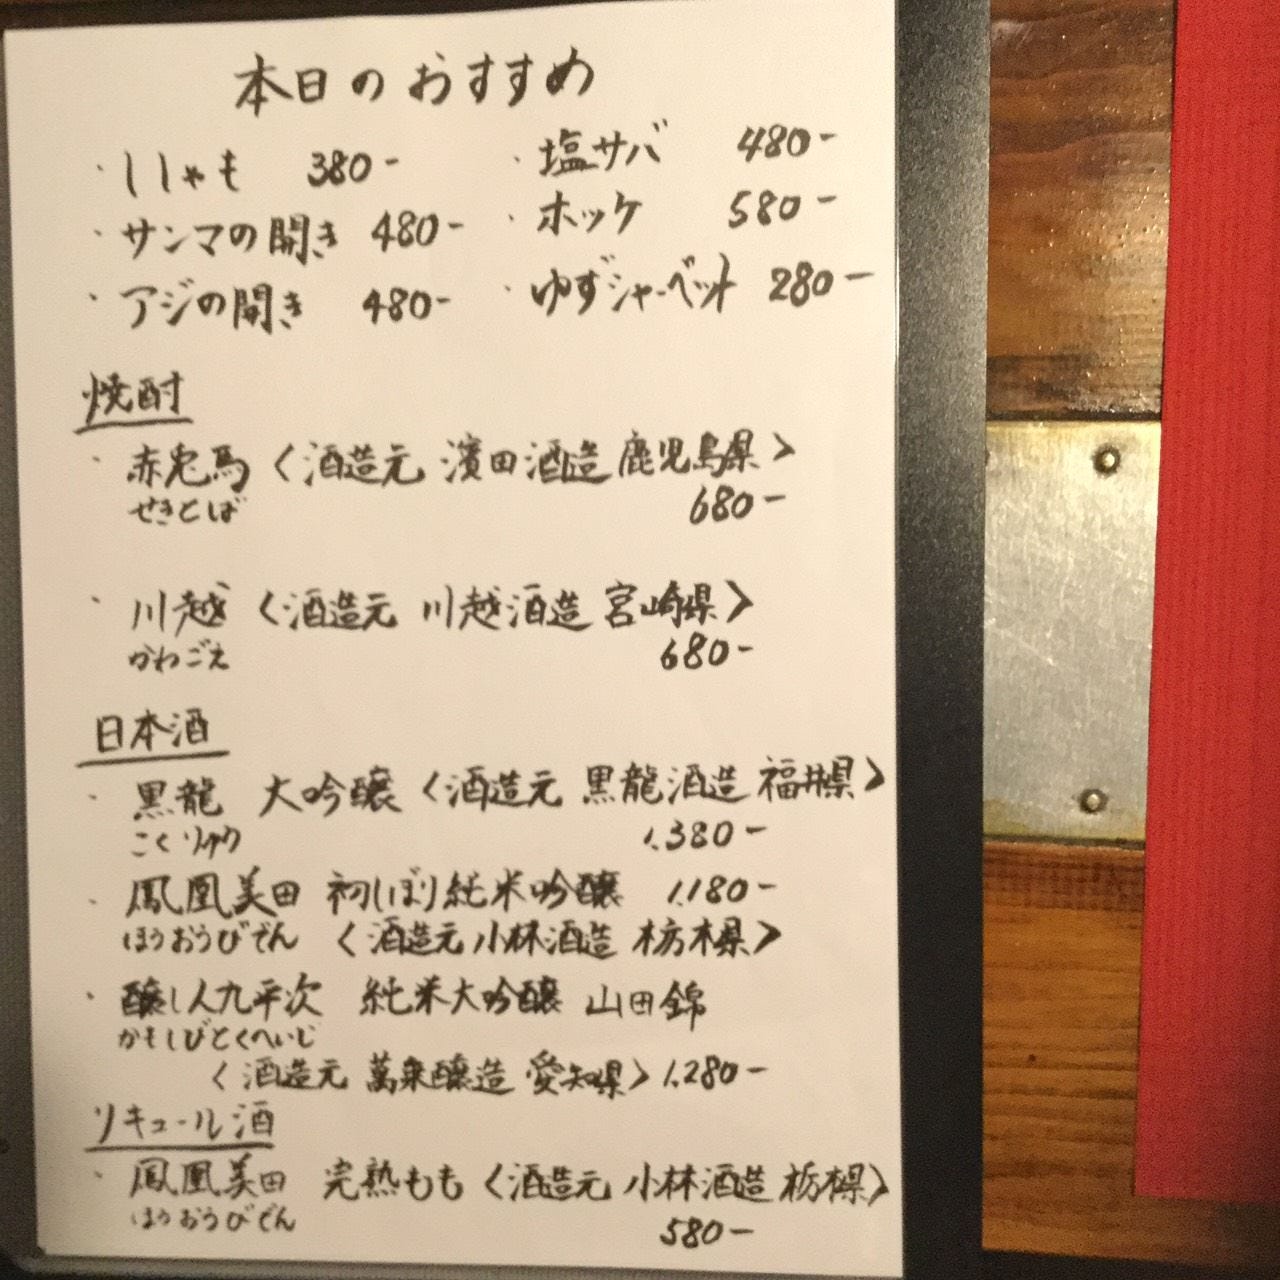 本日のおすすめ
・ししゃも 380-
・塩サバ 480-
・サンマの開き 480-
・ホッケ 580-
・アジの開き 480-
・ゆずシャーベット 280-
焼酎
・赤兎馬〈酒造元 濱田酒造 鹿児島県〉
せきとば 680-
・川越〈酒造元 川越酒造 宮崎県〉
かわごえ 680-
日本酒
・黒龍 大吟醸〈酒造元 黒龍酒造 福井県〉
こくりゅう 1,380-
・鳳凰美田 初しぼり純米吟醸 1,180-
ほうおうびでん〈酒造元 小林酒造 栃木県〉
・醸し人九平次 純米大吟醸 山田錦
かもしびとくへいじ
〈酒造元 萬乗醸造 愛知県〉1,280-
リキュール酒
・鳳凰美田 完熟もも〈酒造元 小林酒造 栃木県〉
ほうおうびでん 580-